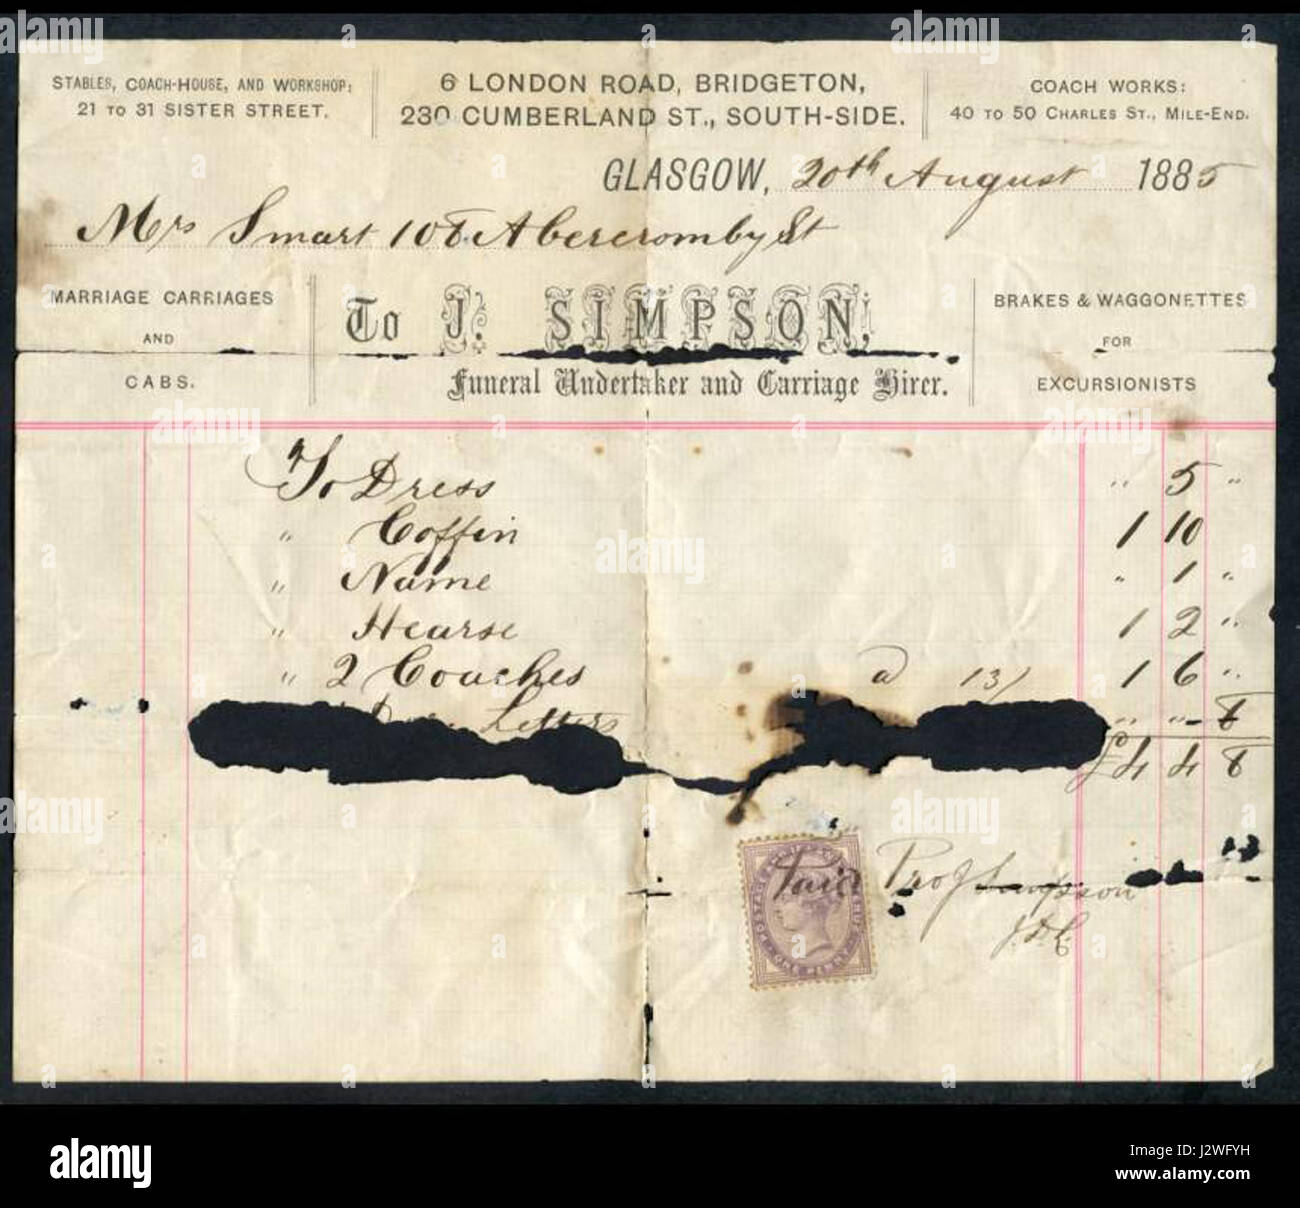 STABLES, COACH-HOUSE, AND WORKSHOP:
21 TO 31 SISTER STREET.
6 LONDON ROAD, BRIDGETON,
230 CUMBERLAND ST., SOUTH-SIDE.
COACH WORKS:
40 TO 50 CHARLES ST., MILE-END.
GLASGOW, 20th August 1885
Mrs Smart 108 Abercromby St
MARRIAGE CARRIAGES
AND
CABS.
To J. SIMPSON,
Funeral Undertaker and Carriage Hirer.
BRAKES & WAGGONETTES
FOR
EXCURSIONISTS
To Dress " 5 "
" Coffin 1 10
" Name " 1 "
" Hearse 1 2 "
" 2 Coaches @ 13/ 1 6 "
Letters " " 8
£4 4 8
POSTAGE
ONE PENNY
Paid
Pro J Simpson
alamy
Image ID: J2WFYH
www.alamy.com